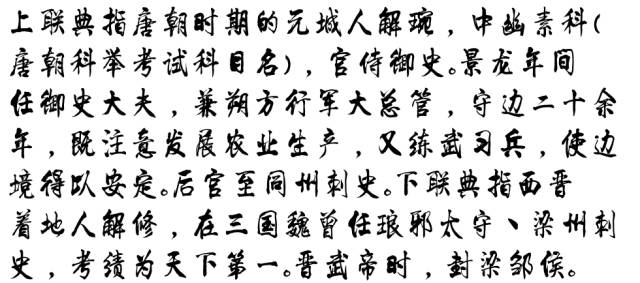 上联典指唐朝时期的元城人解琬，中幽素科(
唐朝科举考试科目名)，官侍御史。景龙年间
任御史大夫，兼朔方行军大总管，守边二十余
年，既注意发展农业生产，又练武习兵，使边
境得以安定。后官至同州刺史。下联典指西晋
着地人解修，在三国魏曾任琅邪太守、梁州刺
史，考绩为天下第一。晋武帝时，封梁邹侯。